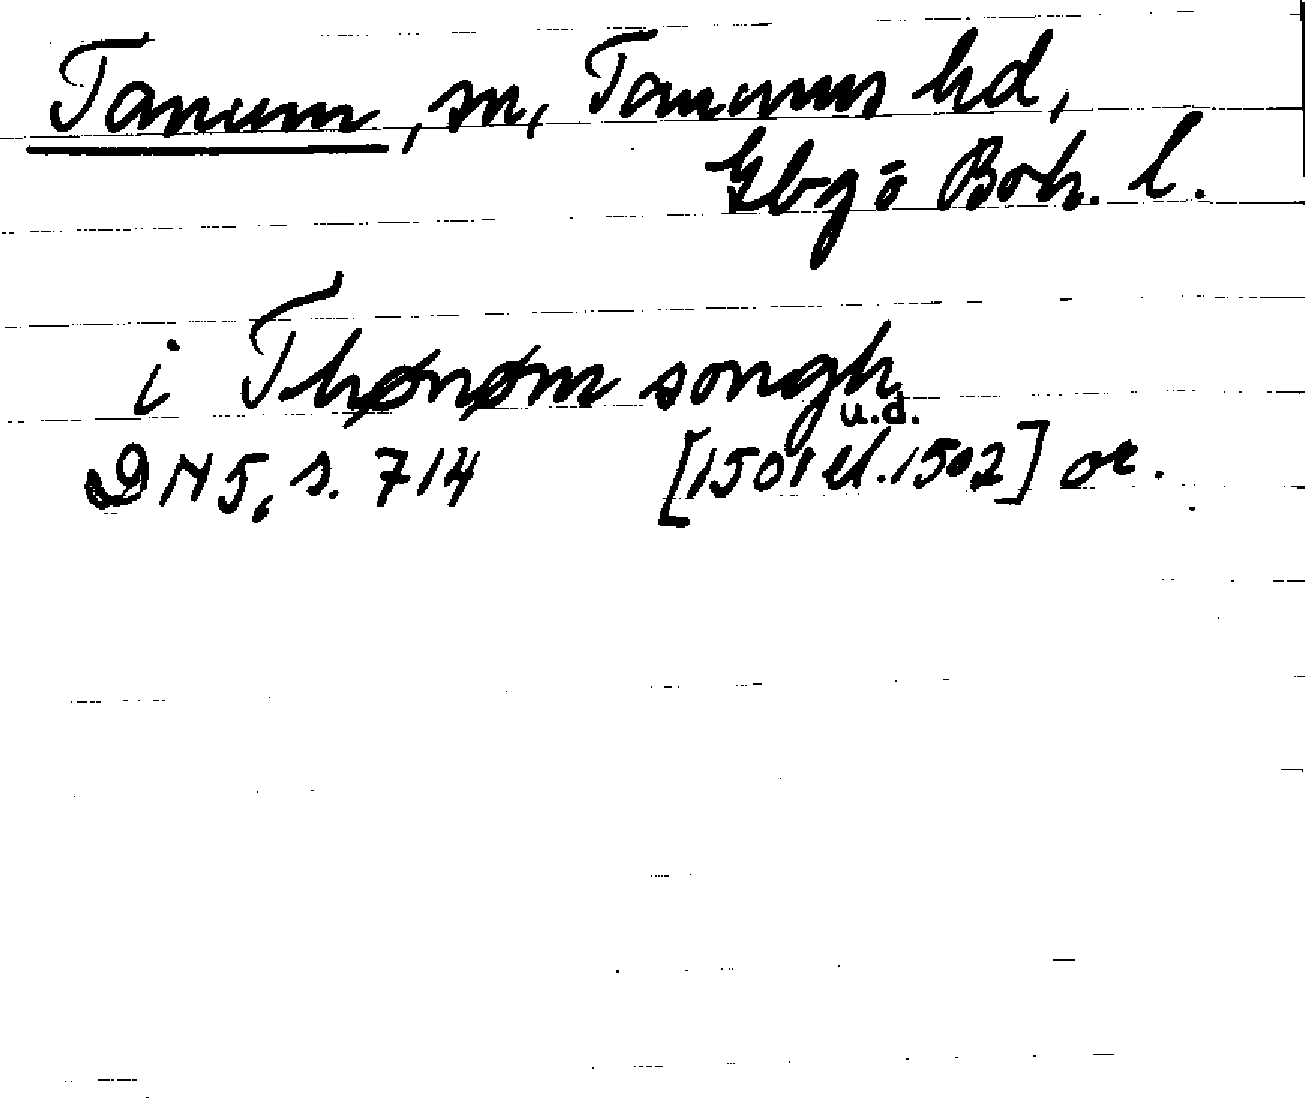 Tanum, sn, Tanums hd,
Gbg o Boh. l.
i Thønøm songh
u.d.
DN 5, s. 714 [1501 el. 1502] or.